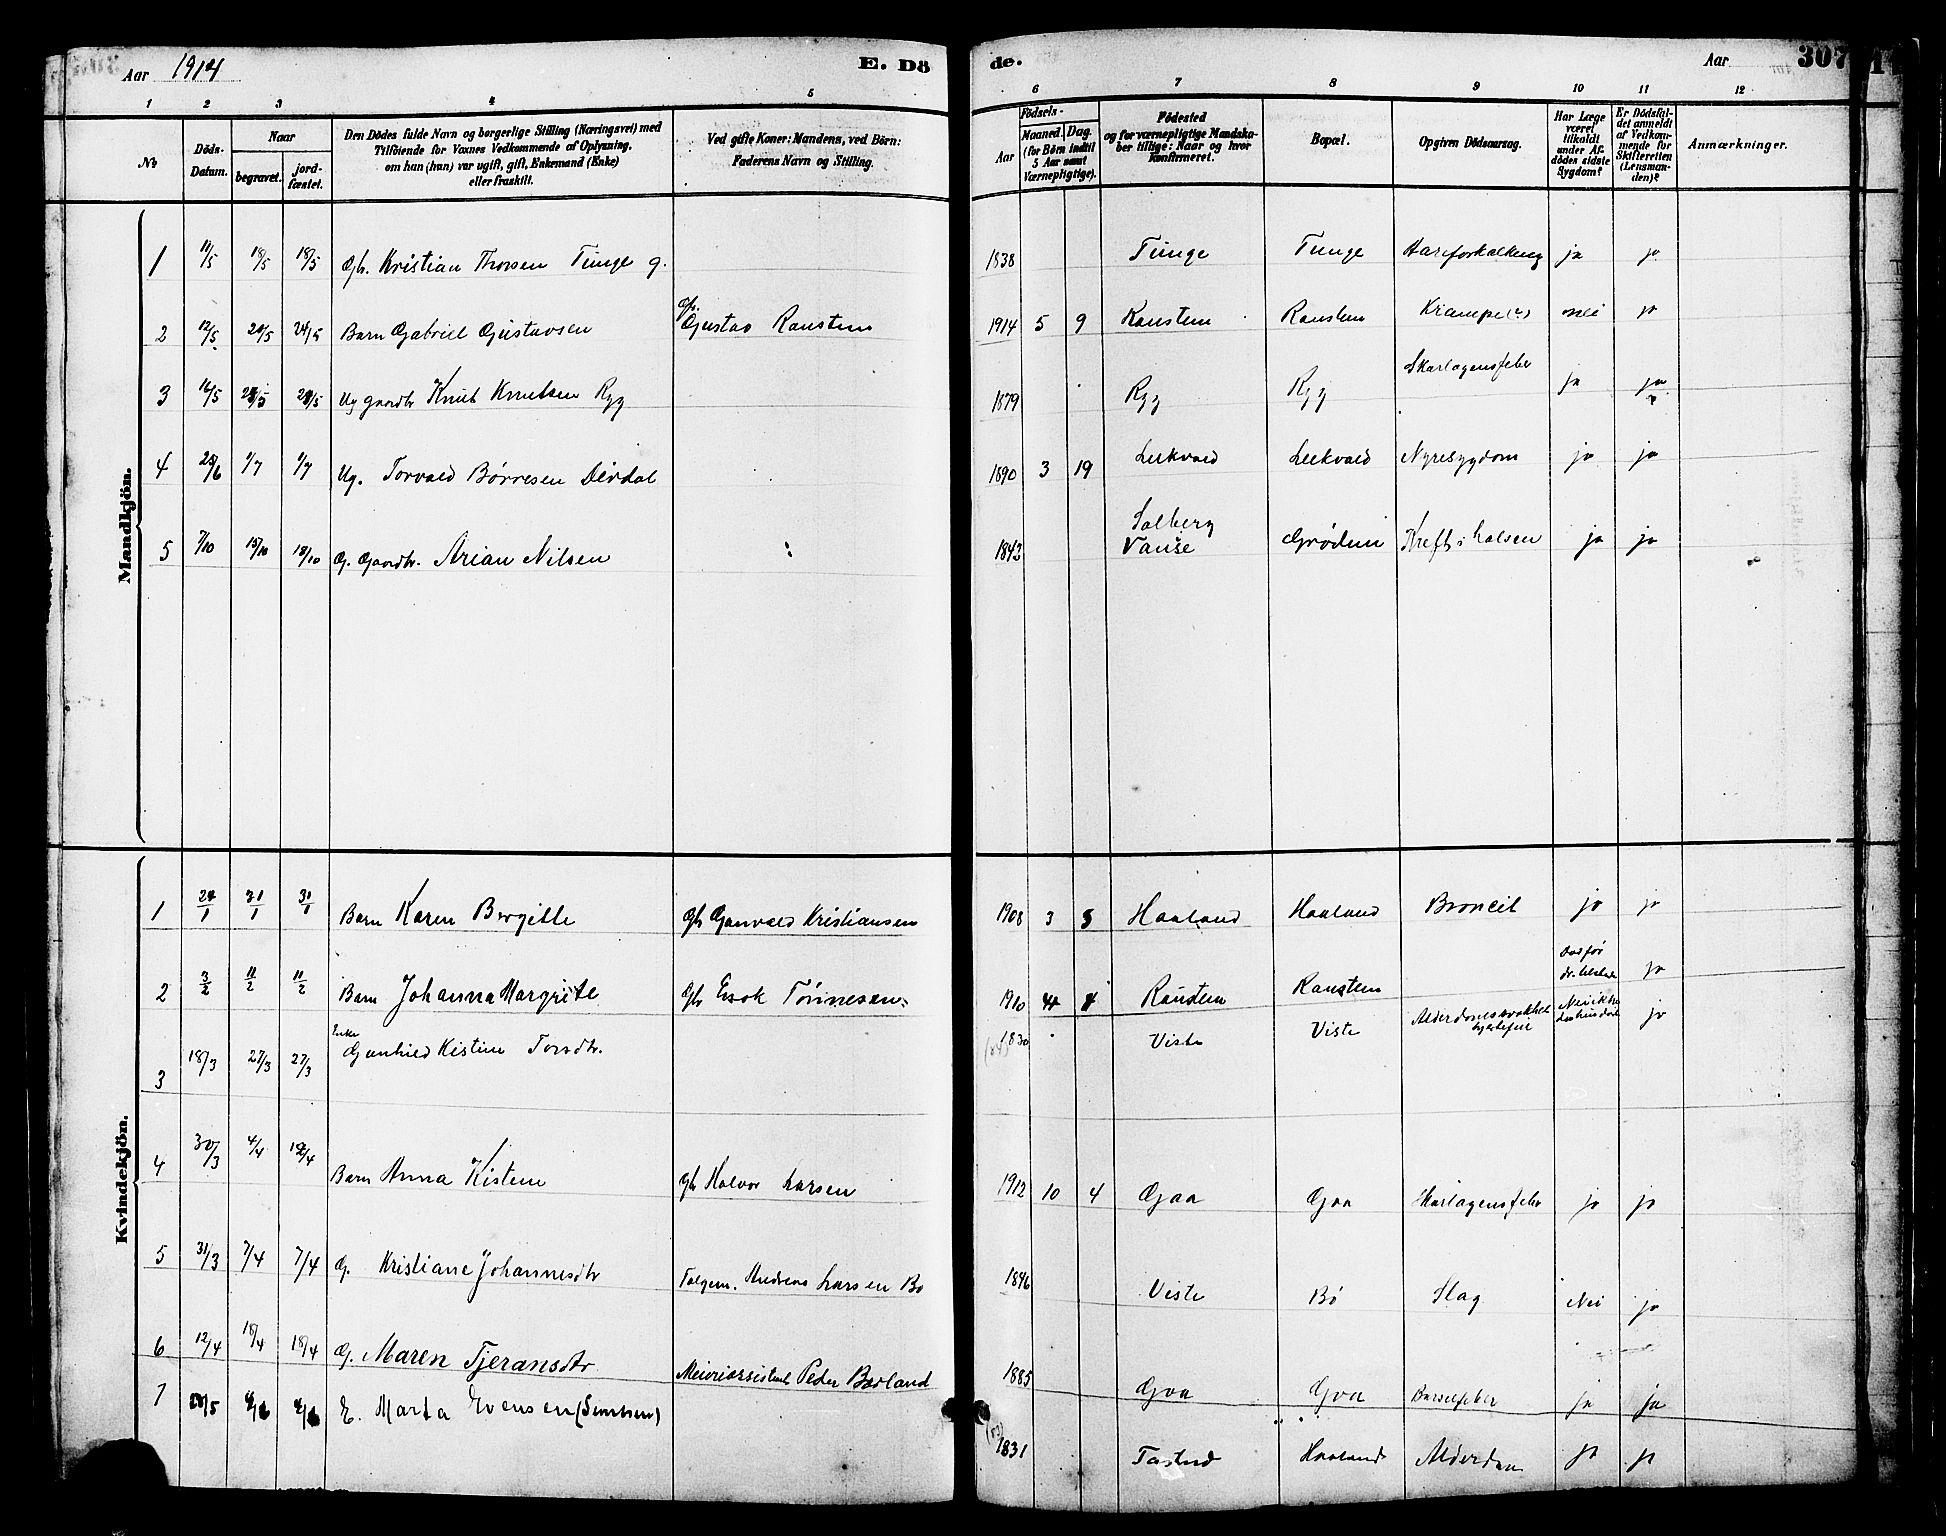 Aar 1914
E. Dö
de.
Aar
307
1 2 3 4 5 6 7 8 9 10 11 12
No
Döds-Datum.
Naar
begravet.
jord-fæstet.
Den Dödes fulde Navn og borgerlige Stilling (Næringsvei) med
Tilföiende for Voxnes Vedkommende af Oplysning,
om han (hun) var ugift, gift, Enkemand (Enke)
eller fraskilt.
Ved gifte Koner: Mandens, ved Börn:
Faderens Navn og Stilling.
Födsels-
Aar
Maaned. Dag.
(for Börn indtil
5 Aar samt
Værnepligtige).
Födested
og for værnepligtige Mandska-
ber tillige: Naar og hvor
konfirmeret.
Bopæl.
Opgiven Dödsaarsag.
Har Læge
været
tilkaldt
under Af-
dödes sidste
Sygdom?
Er Dödsfal-
det anmeldt
af Vedkom-
mende for
Skifteretten
(Lensman-
den)?
Anmærkninger.
Mandkjön.
1 11/5 18/5 18/5 Gbr. Kristian Thorsen Tunge g. 1838 Tunge Tunge Aareforkalkning ja ja
2 12/5 20/5 24/5 Barn Gabriel Gustavsen Gbr. Gustav Raustein 1914 5 9 Raustein Raustein Krampe(?) nei ja
3 16/5 ug gaardbr Knut Knutsen Ryg 1879 Ryg Ryg Skarlagensfeber ja ja
4 28/6 1/7 1/7 Ug. Torvald Börresen Dirdal 1890 3 19 Leikvold Leikvold Nyresygdom ja ja
5 7/10 15/10 18/10 G. Gaardbr. Arian Nilsen 1842 Salberg Vanse Grödem Kreft i halsen ja ja
Kvindekjön.
1 31/1 31/1 Barn Karen Bergitte Gbr Gunvald Kristiansen 1908 3 5 Haaland Haaland Broncit ja ja
2 3/2 11/2 11/2 Barn Johanna Margrete Gbr Esok Tönnesen 1910 4 Raustein Raustein ja
3 18/3 27/3 27/3 Enke Gunhild Kistine Torsdtr. 1830 (84) Viste Viste Alderdomssvakhet hjertefeil ja
4 30/3 4/4 12/4 Barn Anna Kistine Gbr Halvor Larsen 1912 10 4 Goa Goa Skarlagensfeber ja ja
5 31/3 7/4 7/4 G. Kristiane Johannesdtr Andreas Larsen Bö 1846 Viste Bö Slag Nei ja
6 12/4 18/4 18/4 G. Maren Tjeransdtr Meieriassistent Peder Borland 1885 Goa Goa Barselfeber ja ja
7 E. Marta Evensen (Simonsen) 1831 Tasted Haaland Alderdom ja ja